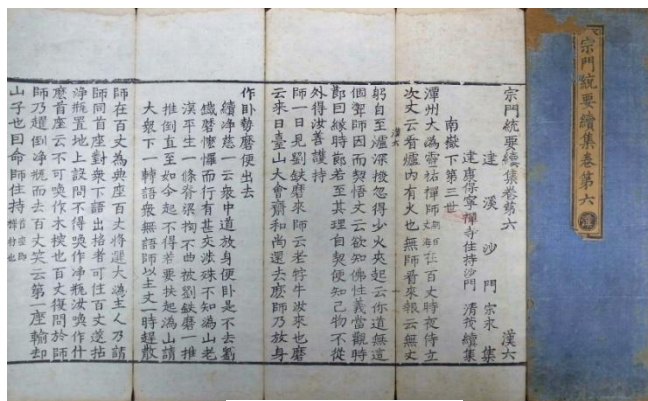 宗門統要續集卷第六 漢
宗門統要續集卷第六 漢六
建溪沙門宗永集
建康保寧禪寺住持沙門 清茂續集
南嶽下第三世
潭州大溈靈祐禪師嗣百丈海在百丈時夜侍立
次丈云看爐內有火也無師看來報云無丈
漢六
躬自至爐深撥忽得少火夾起云你道無這
個聻師因而契悟丈云欲知佛性義當觀時
節因緣時節若至其理自契便知己物不從
外得汝善護持
師一日見劉鐵磨來師云老牸牛汝來也磨
云來日臺山大會齋和尚還去麼師乃放身
作卧勢磨便出去
續淨慈一云衆中道放身便卧是不去劉
鐵磨懡㦬而行有甚交涉殊不知溈山老
漢平生一條脊梁拗不曲被劉鐵磨一推
推倒直至如今起不得若要扶起溈山請
大衆下一轉語衆無語師以主丈一時趕散
師在百丈為典座百丈將選大溈主人乃請
師同首座對衆下語出格者可往百丈遂拈
淨瓶置地上設問不得喚作淨瓶汝喚作什
麼首座云不可喚作木𣔻也百丈復問於師
師乃趯倒淨瓶而去百丈笑云第一座輸却
山子也因命師住持首座即華林也